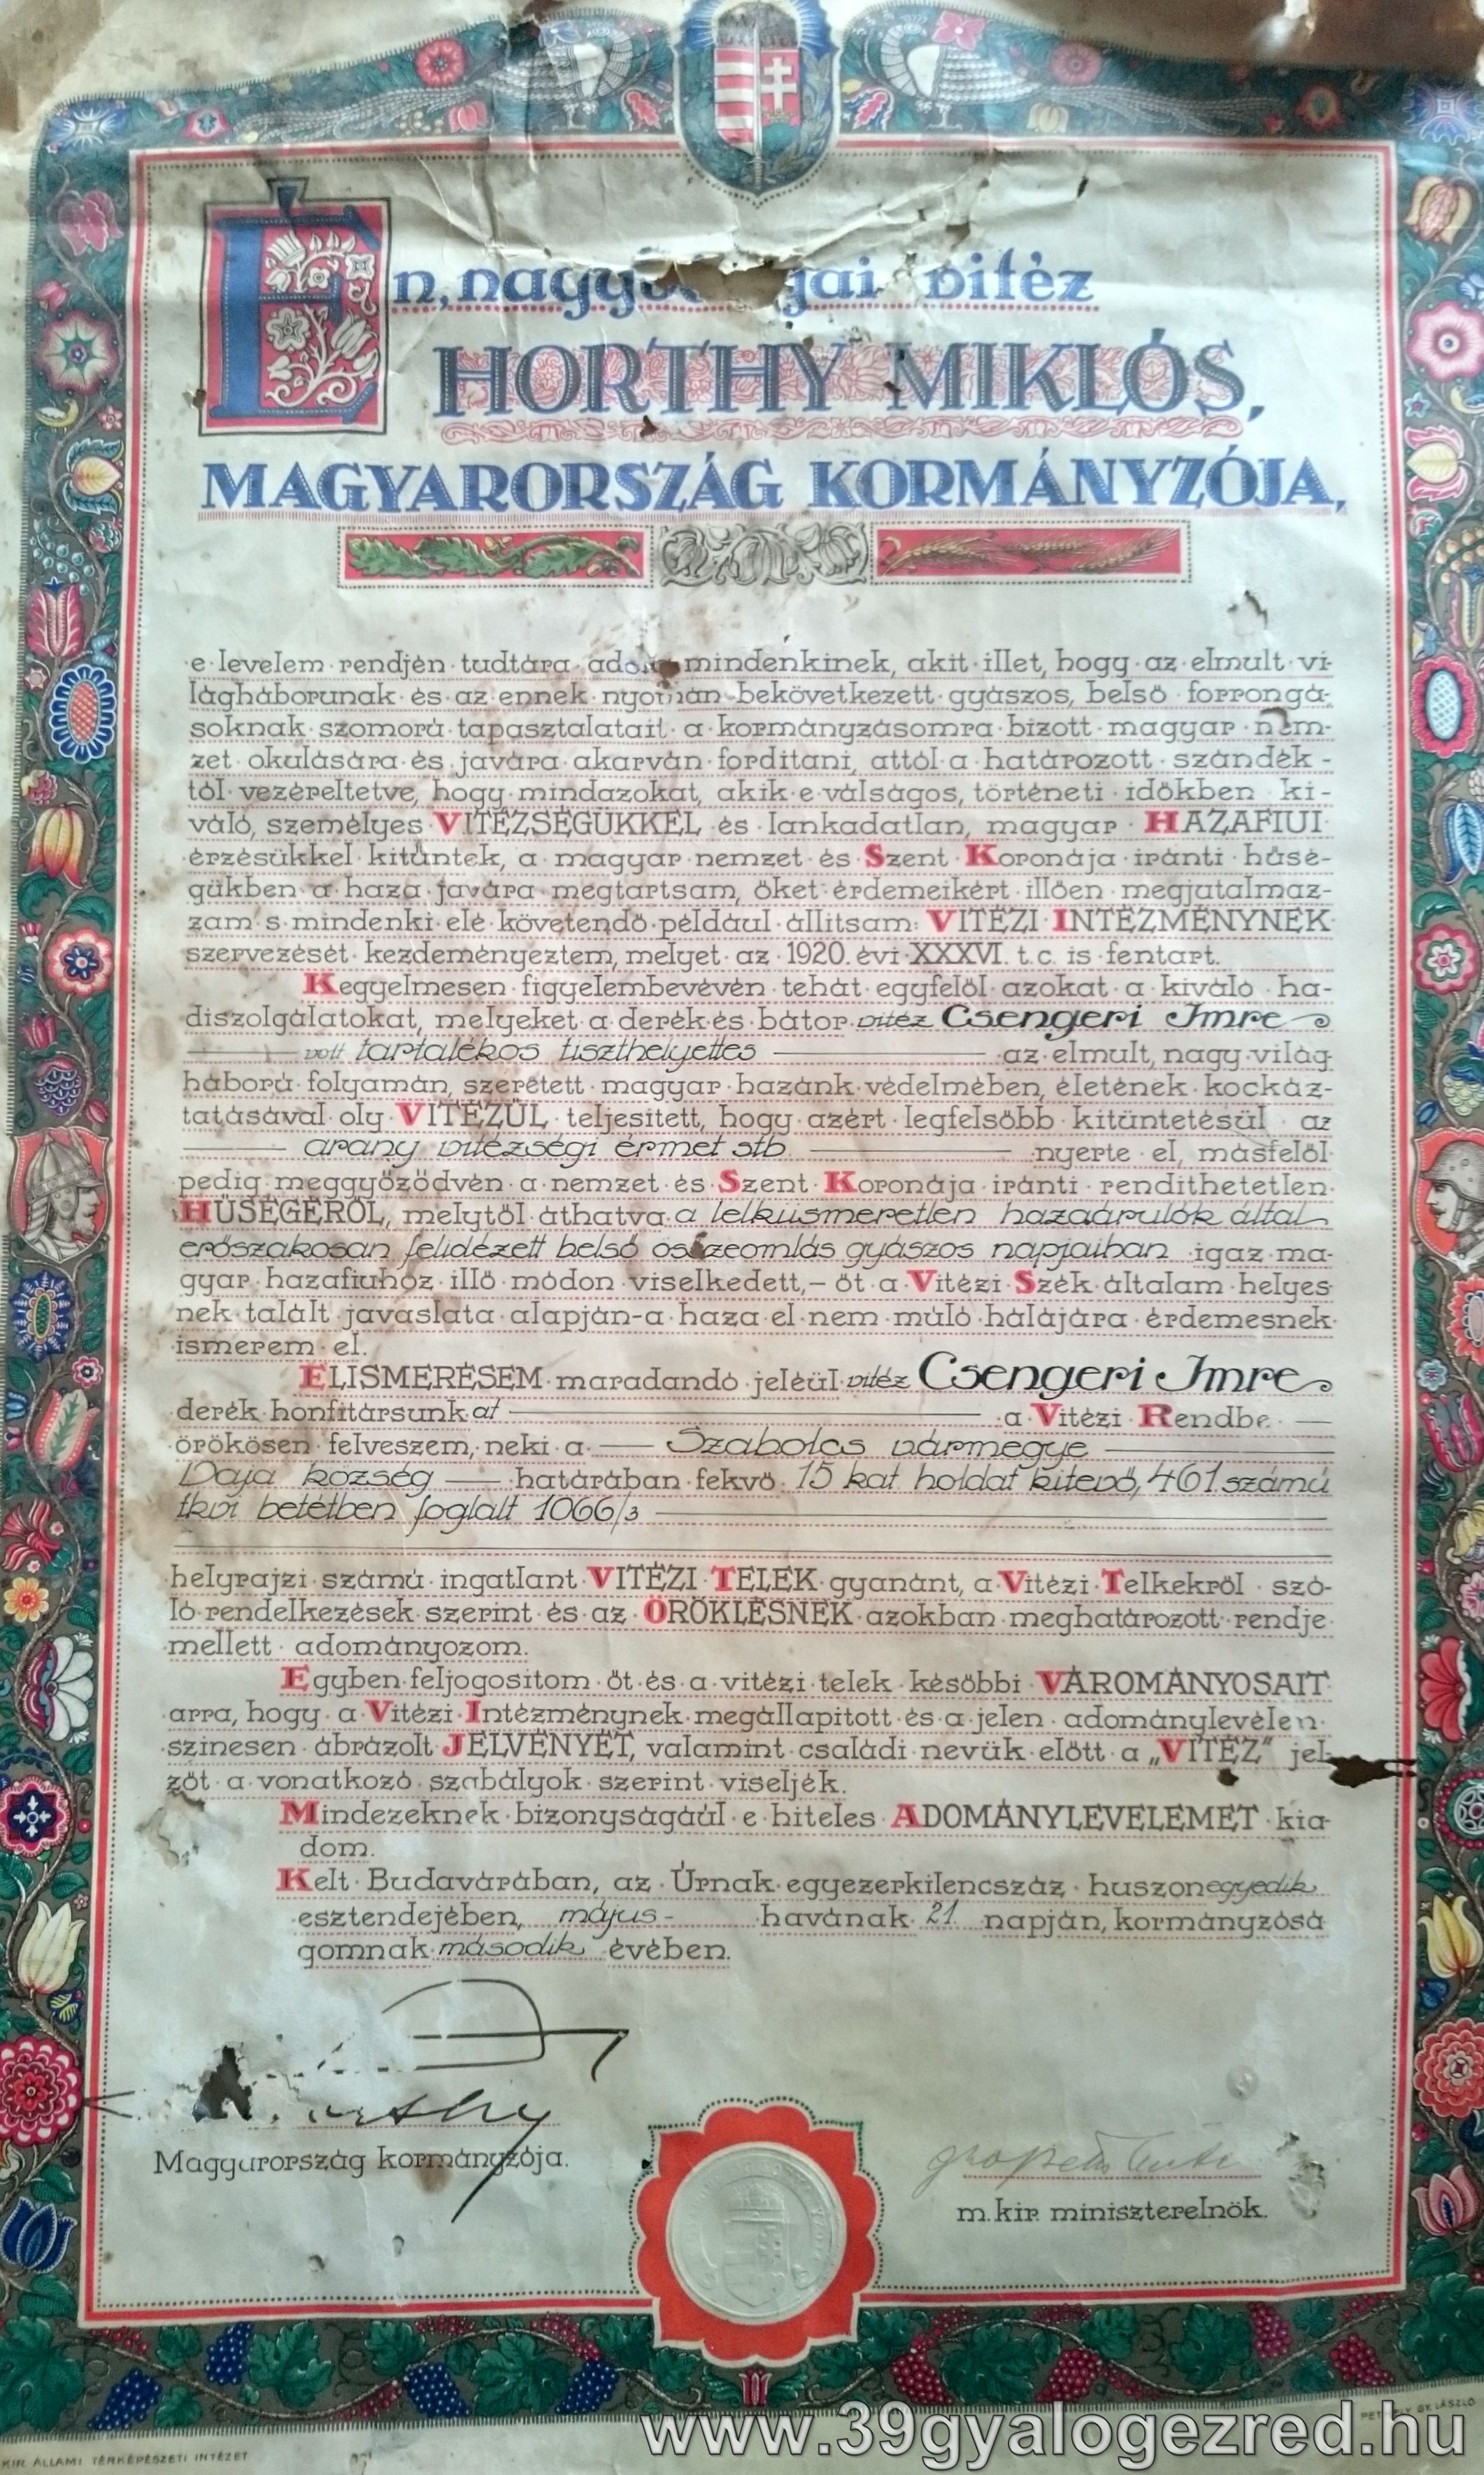 Én, nagybányai vitéz
HORTHY MIKLÓS,
MAGYARORSZÁG KORMÁNYZÓJA,
e levelem rendjén tudtára adom mindenkinek, akit illet, hogy az elmult vi-
lágháborunak és az ennek nyomán bekövetkezett gyászos, belső forrongá-
soknak szomorú tapasztalatait a kormányzásomra bizott magyar nem-
zet okulására és javára akarván forditani, attól a határozott szándék-
tól vezéreltetve, hogy mindazokat, akik e válságos, történeti időkben ki-
váló, személyes VITÉZSÉGÜKKEL és lankadatlan, magyar HAZAFIUI
érzésükkel kitűntek, a magyar nemzet és Szent Koronája iránti hűsé-
gükben a haza javára megtartsam, őket érdemeikért illően megjutalmaz-
zam s mindenki elé követendő például állitsam: VITÉZI INTÉZMÉNYNEK
szervezését kezdeményeztem, melyet az 1920. évi XXXVI. t.c. is fentart.
Kegyelmesen figyelembevévén tehát egyfelől azokat a kiváló ha-
diszolgálatokat, melyeket a derék és bátor vitéz Csengeri Imre
volt tartalékos tiszthelyettes az elmult, nagy világ
háború folyamán, szeretett magyar hazánk védelmében, életének kockáz-
tatásával oly VITÉZÜL teljesitett, hogy azért legfelsőbb kitüntetésül az
arany vitézségi érmet stb. nyerte el, másfelől
pedig meggyőződvén a nemzet és Szent Koronája iránti rendithetetlen
HŰSÉGÉRŐL, melytől áthatva a lelkiismeretlen hazaárulók által
erőszakosan felidézett belső összeomlás gyászos napjaiban igaz ma-
gyar hazafiuhoz illő módon viselkedett,- őt a Vitézi Szék általam helyes
nek talált javaslata alapján-a haza el nem múló hálájára érdemesnek
ismerem el.
ELISMERÉSEM maradandó jeléül vitéz Csengeri Imre
derék honfitársunkat a Vitézi Rendbe
örökösen felveszem, neki a Szabolcs vármegye
község határában fekvő 15 kat. holdat kitevő, 461 számú
tkvi betétben foglalt 1066/3
helyrajzi számú ingatlant VITÉZI TELEK gyanánt, a Vitézi Telkekről szó-
ló rendelkezések szerint és az ÖRÖKLÉSNEK azokban meghatározott rendje
mellett adományozom.
Egyben feljogositom őt és a vitézi telek későbbi VÁROMÁNYOSAIT
arra, hogy a Vitézi Intézménynek megállapitott és a jelen adománylevélen
szinesen ábrázolt JELVÉNYÉT, valamint családi nevük előtt a „VITÉZ" jel-
zőt a vonatkozó szabályok szerint viseljék.
Mindezeknek bizonyságáúl e hiteles ADOMÁNYLEVELEMET kia-
dom.
Kelt Budavárában, az Úrnak egyezerkilencszáz huszonegyedik
esztendejében, május- havának 21. napján, kormányzósá
gomnak második évében.
Horthy
Magyarország kormányzója.
m. kir. miniszterelnök.
KIR. ÁLLAMI TÉRKÉPÉSZETI INTÉZET
www.39gyalogezred.hu